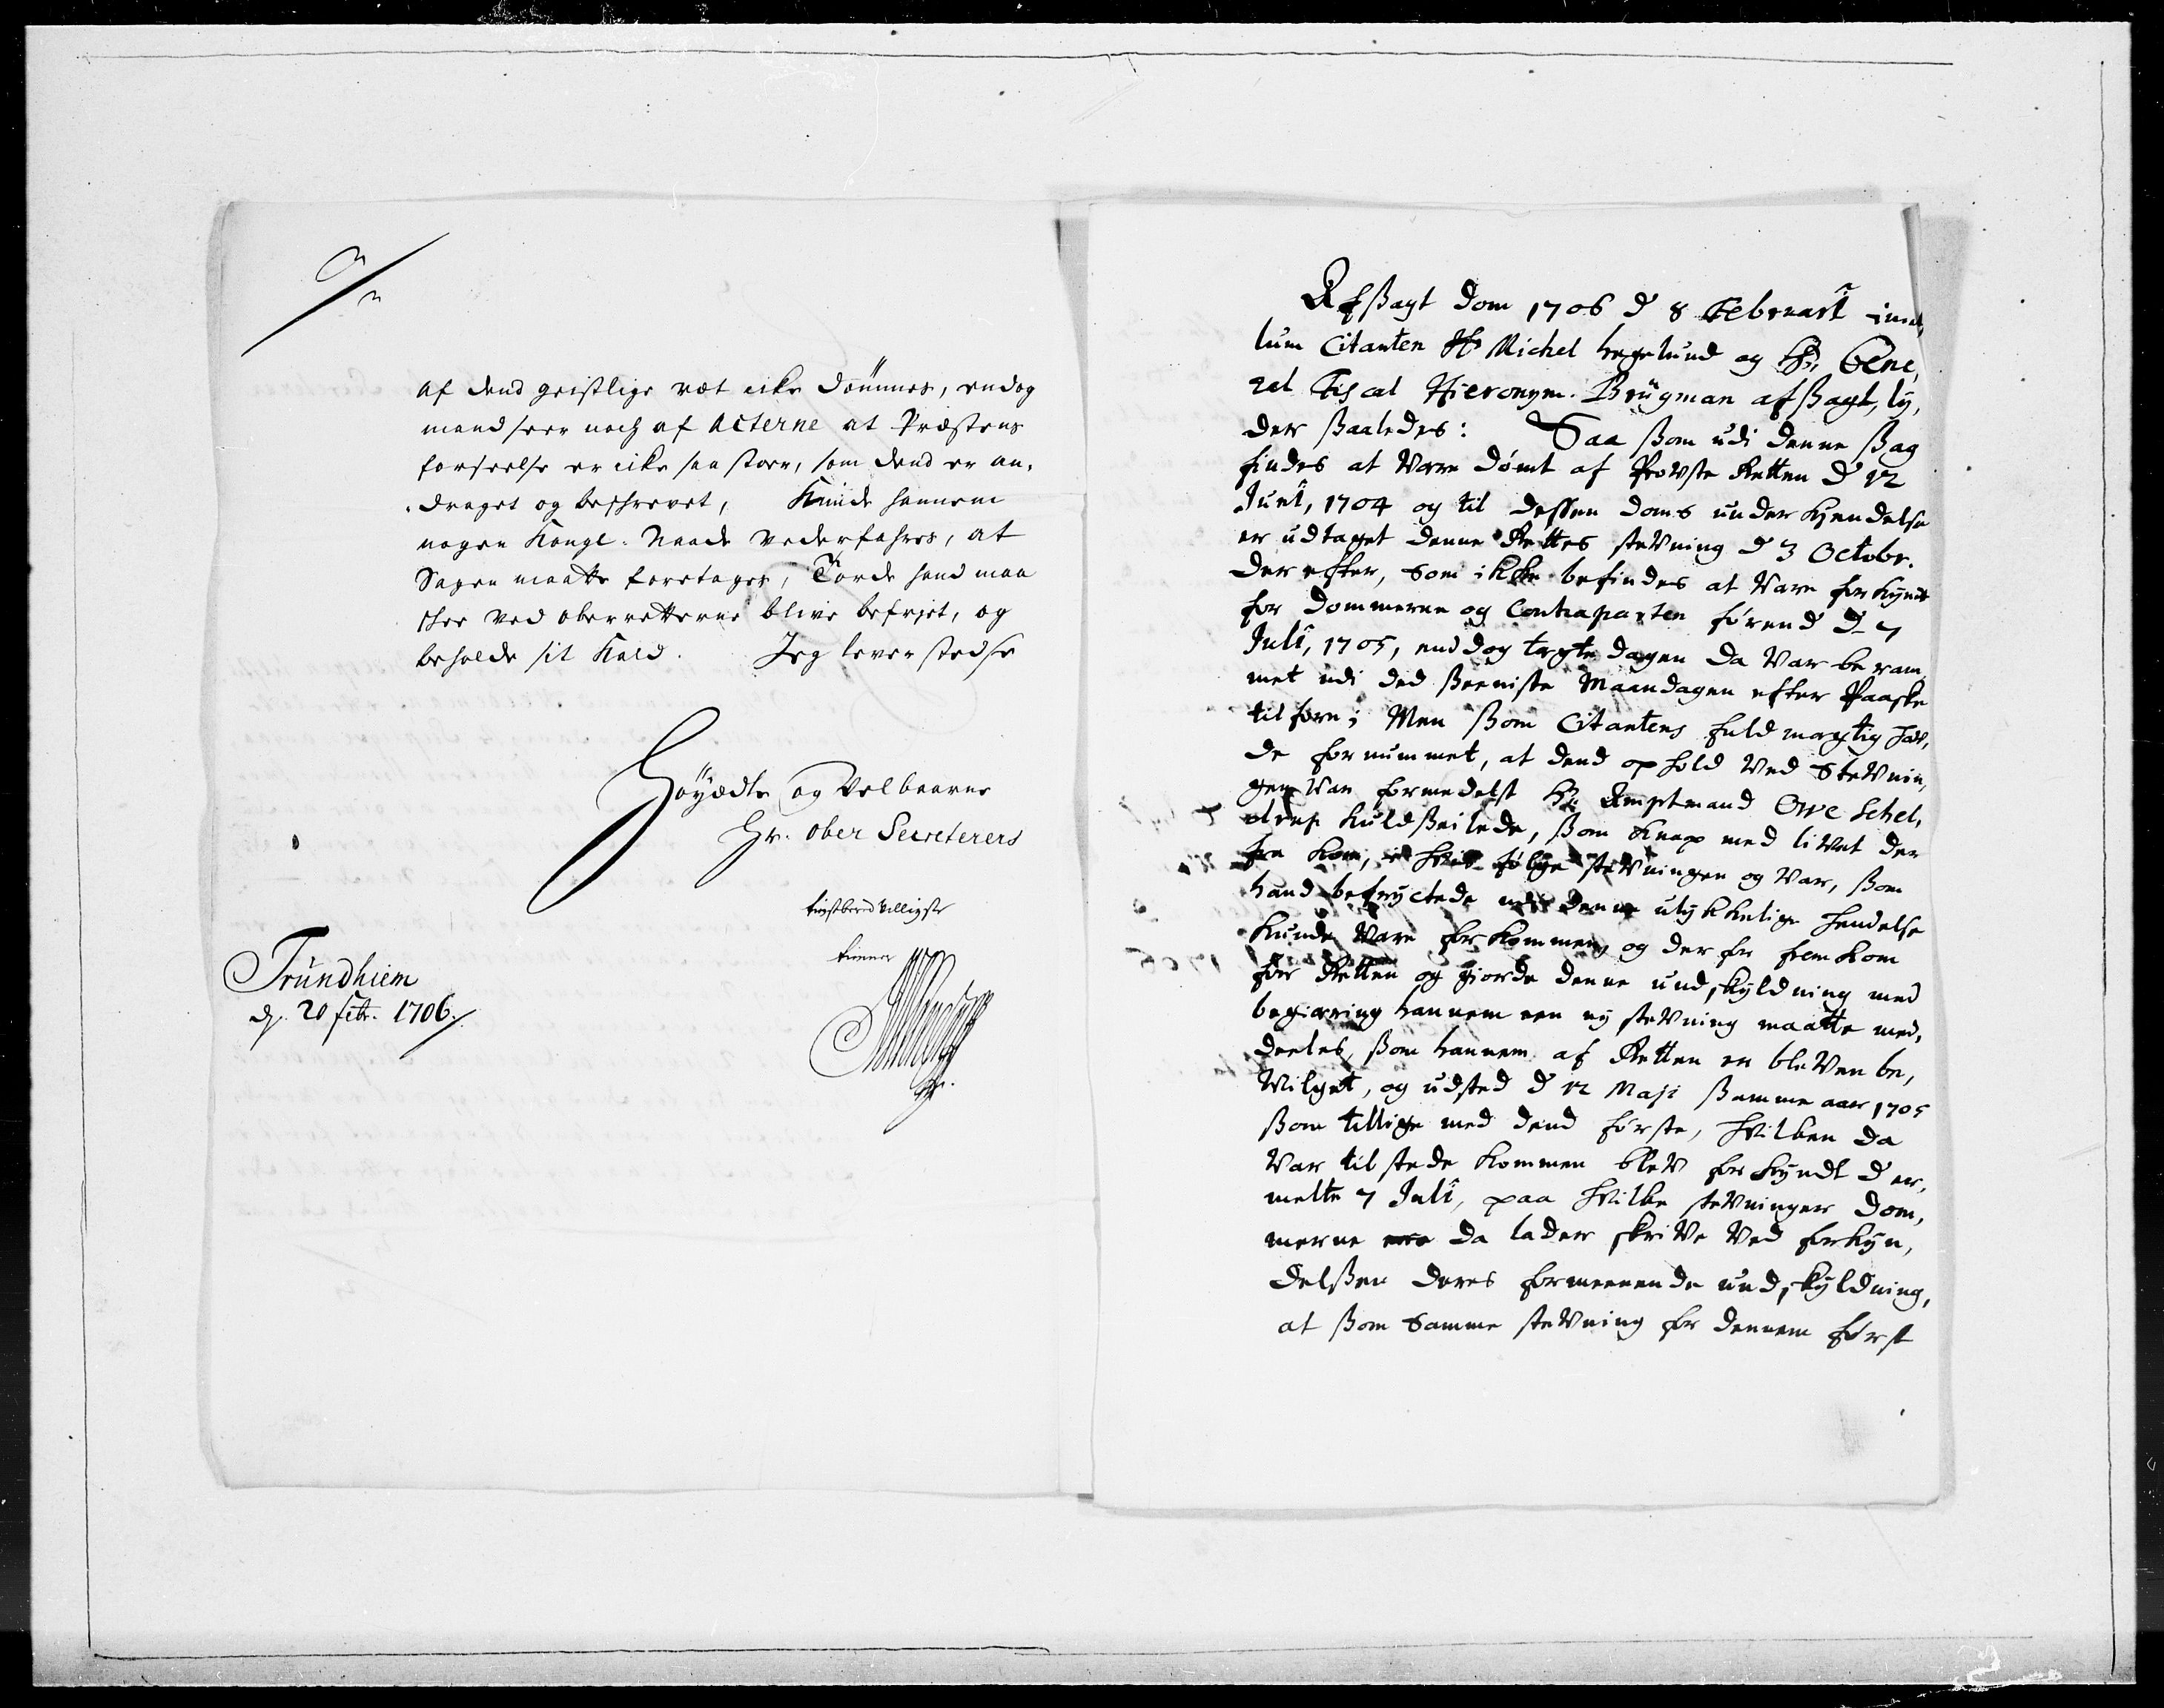 af dend geistlige ræt eike dømmes, endog
mand seer noch af Acterne at Præstens
forseelse er eike saa stoer, som dend er an¬
draget og beschrevet, Kunde hannem
nogen Kongl. Naade vederfahres, at
Sagen maatte foretages, Torde hand maa
skee ved oberretterne blive befriet, og
beholde sit Kald. Jeg lever stedse
Höyædle og Velbaarne
Hr. Ober Secreterers
tienstberedvilligste
tienner
Trundhiem
d. 20 febr. 1706.
Afsagt Dom 1706 d 8 Februarii imel,
lum Citanten Hr Michel Hegelund og Hr. Gene,
ral Fiscal Hieronym. Brügman afsagt, ly,
der saaledes: Saa som udi denne sag
findes at være dømt af Provste Retten d 12
Junii, 1704 og til dessen doms underkjendelse
er udtaget denne Rettes stevning d 3 Octobr.
der efter, som ikke befindes at være forkyndt
for Dommerne og Contraparten førend d 7
Julii, 1705, end dog tægte dagen da var beram,
met udi ded seeniste Maandagen efter Paaske
tilforn; Men som Citantens fuldmægtig hav,
de fornummet, at dend ophold ved Stevnin,
gen var formedelst Hr. Amptmand Owe Schel,
drup kuldseilede, som knap med livet der
fra kom, i hvis følge stevningen og var, som
hand befryctede udi denne ulykkelige hendelse
kunde være forkommen og derfor fremkom
for Retten og giorde denne undskyldning med
begiæring hannem een ny stevning maatte med,
deeles, som hannem af Retten er bleven be,
vilget, og udsted d 12 Maji samme aar 1705
som tillige med dend første, hvilken da
var tilstede kommen blev forkyndt d er,
melte 7 Julii, paa hvilke stevninger dom,
merne da lader skrive ved forkyn,
delsen deres formeenende undskyldning,
at som samme stevning for dennem først